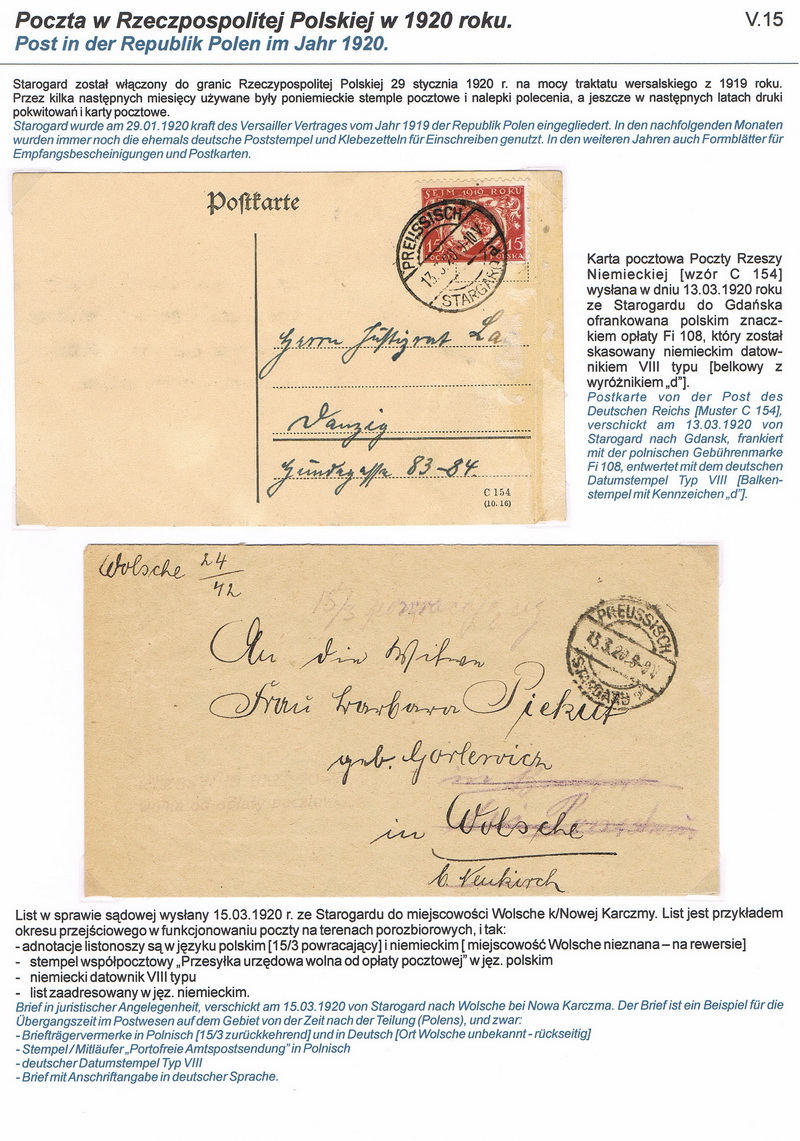 Poczta w Rzeczpospolitej Polskiej w 1920 roku.
V.15
Post in der Republik Polen im Jahr 1920.
Starogard został włączony do granic Rzeczypospolitej Polskiej 29 stycznia 1920 r. na mocy traktatu wersalskiego z 1919 roku.
Przez kilka następnych miesięcy używane były poniemieckie stemple pocztowe i nalepki polecenia, a jeszcze w następnych latach druki
pokwitowań i karty pocztowe.
Starogard wurde am 29.01.1920 kraft des Versailler Vertrages vom Jahr 1919 der Republik Polen eingegliedert. In den nachfolgenden Monaten
wurden immer noch die ehemals deutsche Poststempel und Klebezetteln für Einschreiben genutzt. In den weiteren Jahren auch Formblätter für
Empfangsbescheinigungen und Postkarten.
Postkarte
SEJM 1919 ROKU
15 15
POLSKA
PREUSSISCH
STARGARD
Herrn Justizrat La
Danzig
Hundegasse 83-84.
C 154
(10. 16)
Karta pocztowa Poczty Rzeszy
Niemieckiej [wzór C 154]
wysłana w dniu 13.03.1920 roku
ze Starogardu do Gdańska
ofrankowana polskim znacz-
kiem opłaty Fi 108, który został
skasowany niemieckim datow-
nikiem VIII typu [belkowy z
wyróżnikiem „d"].
Postkarte von der Post des
Deutschen Reichs [Muster C 154],
verschickt am 13.03.1920 von
Starogard nach Gdansk, frankiert
mit der polnischen Gebührenmarke
Fi 108, entwertet mit dem deutschen
Datumstempel Typ VIII [Balken-
stempel mit Kennzeichen „d"].
Wolsche 24/42
15/3
PREUSSISCH
STARGARD
An die Witwe
Frau Barbara Piekut
geb. Gorlewicz
in Wolsche
b. Neukirch
List w sprawie sądowej wysłany 15.03.1920 r. ze Starogardu do miejscowości Wolsche k/Nowej Karczmy. List jest przykładem
okresu przejściowego w funkcjonowaniu poczty na terenach porozbiorowych, i tak:
- adnotacje listonoszy są w języku polskim [15/3 powracający] i niemieckim [ miejscowość Wolsche nieznana – na rewersie]
- stempel współpocztowy „Przesyłka urzędowa wolna od opłaty pocztowej" w jęz. polskim
- niemiecki datownik VIII typu
- list zaadresowany w jęz. niemieckim.
Brief in juristischer Angelegenheit, verschickt am 15.03.1920 von Starogard nach Wolsche bei Nowa Karczma. Der Brief ist ein Beispiel für die
Übergangszeit im Postwesen auf dem Gebiet von der Zeit nach der Teilung (Polens), und zwar:
- Briefträgervermerke in Polnisch [15/3 zurückkehrend] und in Deutsch [Ort Wolsche unbekannt - rückseitig]
- Stempel / Mitläufer „Portofreie Amtspostsendung" in Polnisch
- deutscher Datumstempel Typ VIII
- Brief mit Anschriftangabe in deutscher Sprache.